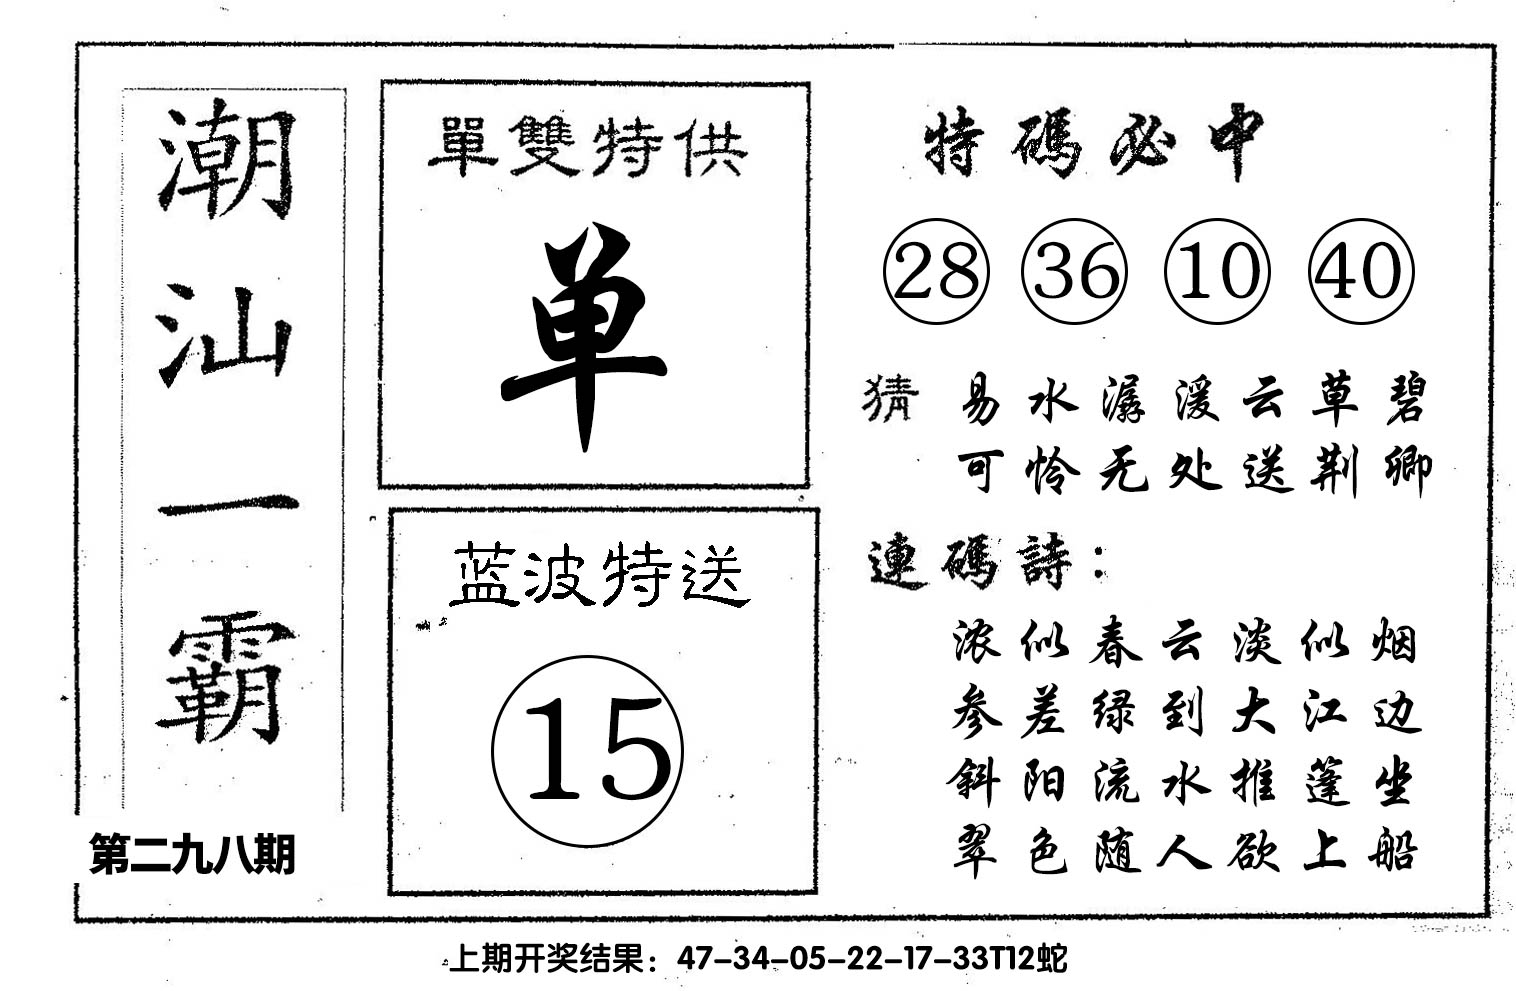 潮汕一霸
第二九八期
單雙特供
单
蓝波特送
15
特碼必中
28 36 10 40
猜 易水潺湲云草碧
可怜无处送荆卿
連碼詩：
浓似春云淡似烟
参差绿到大江边
斜阳流水推蓬坐
翠色随人欲上船
上期开奖结果：47-34-05-22-17-33T12蛇